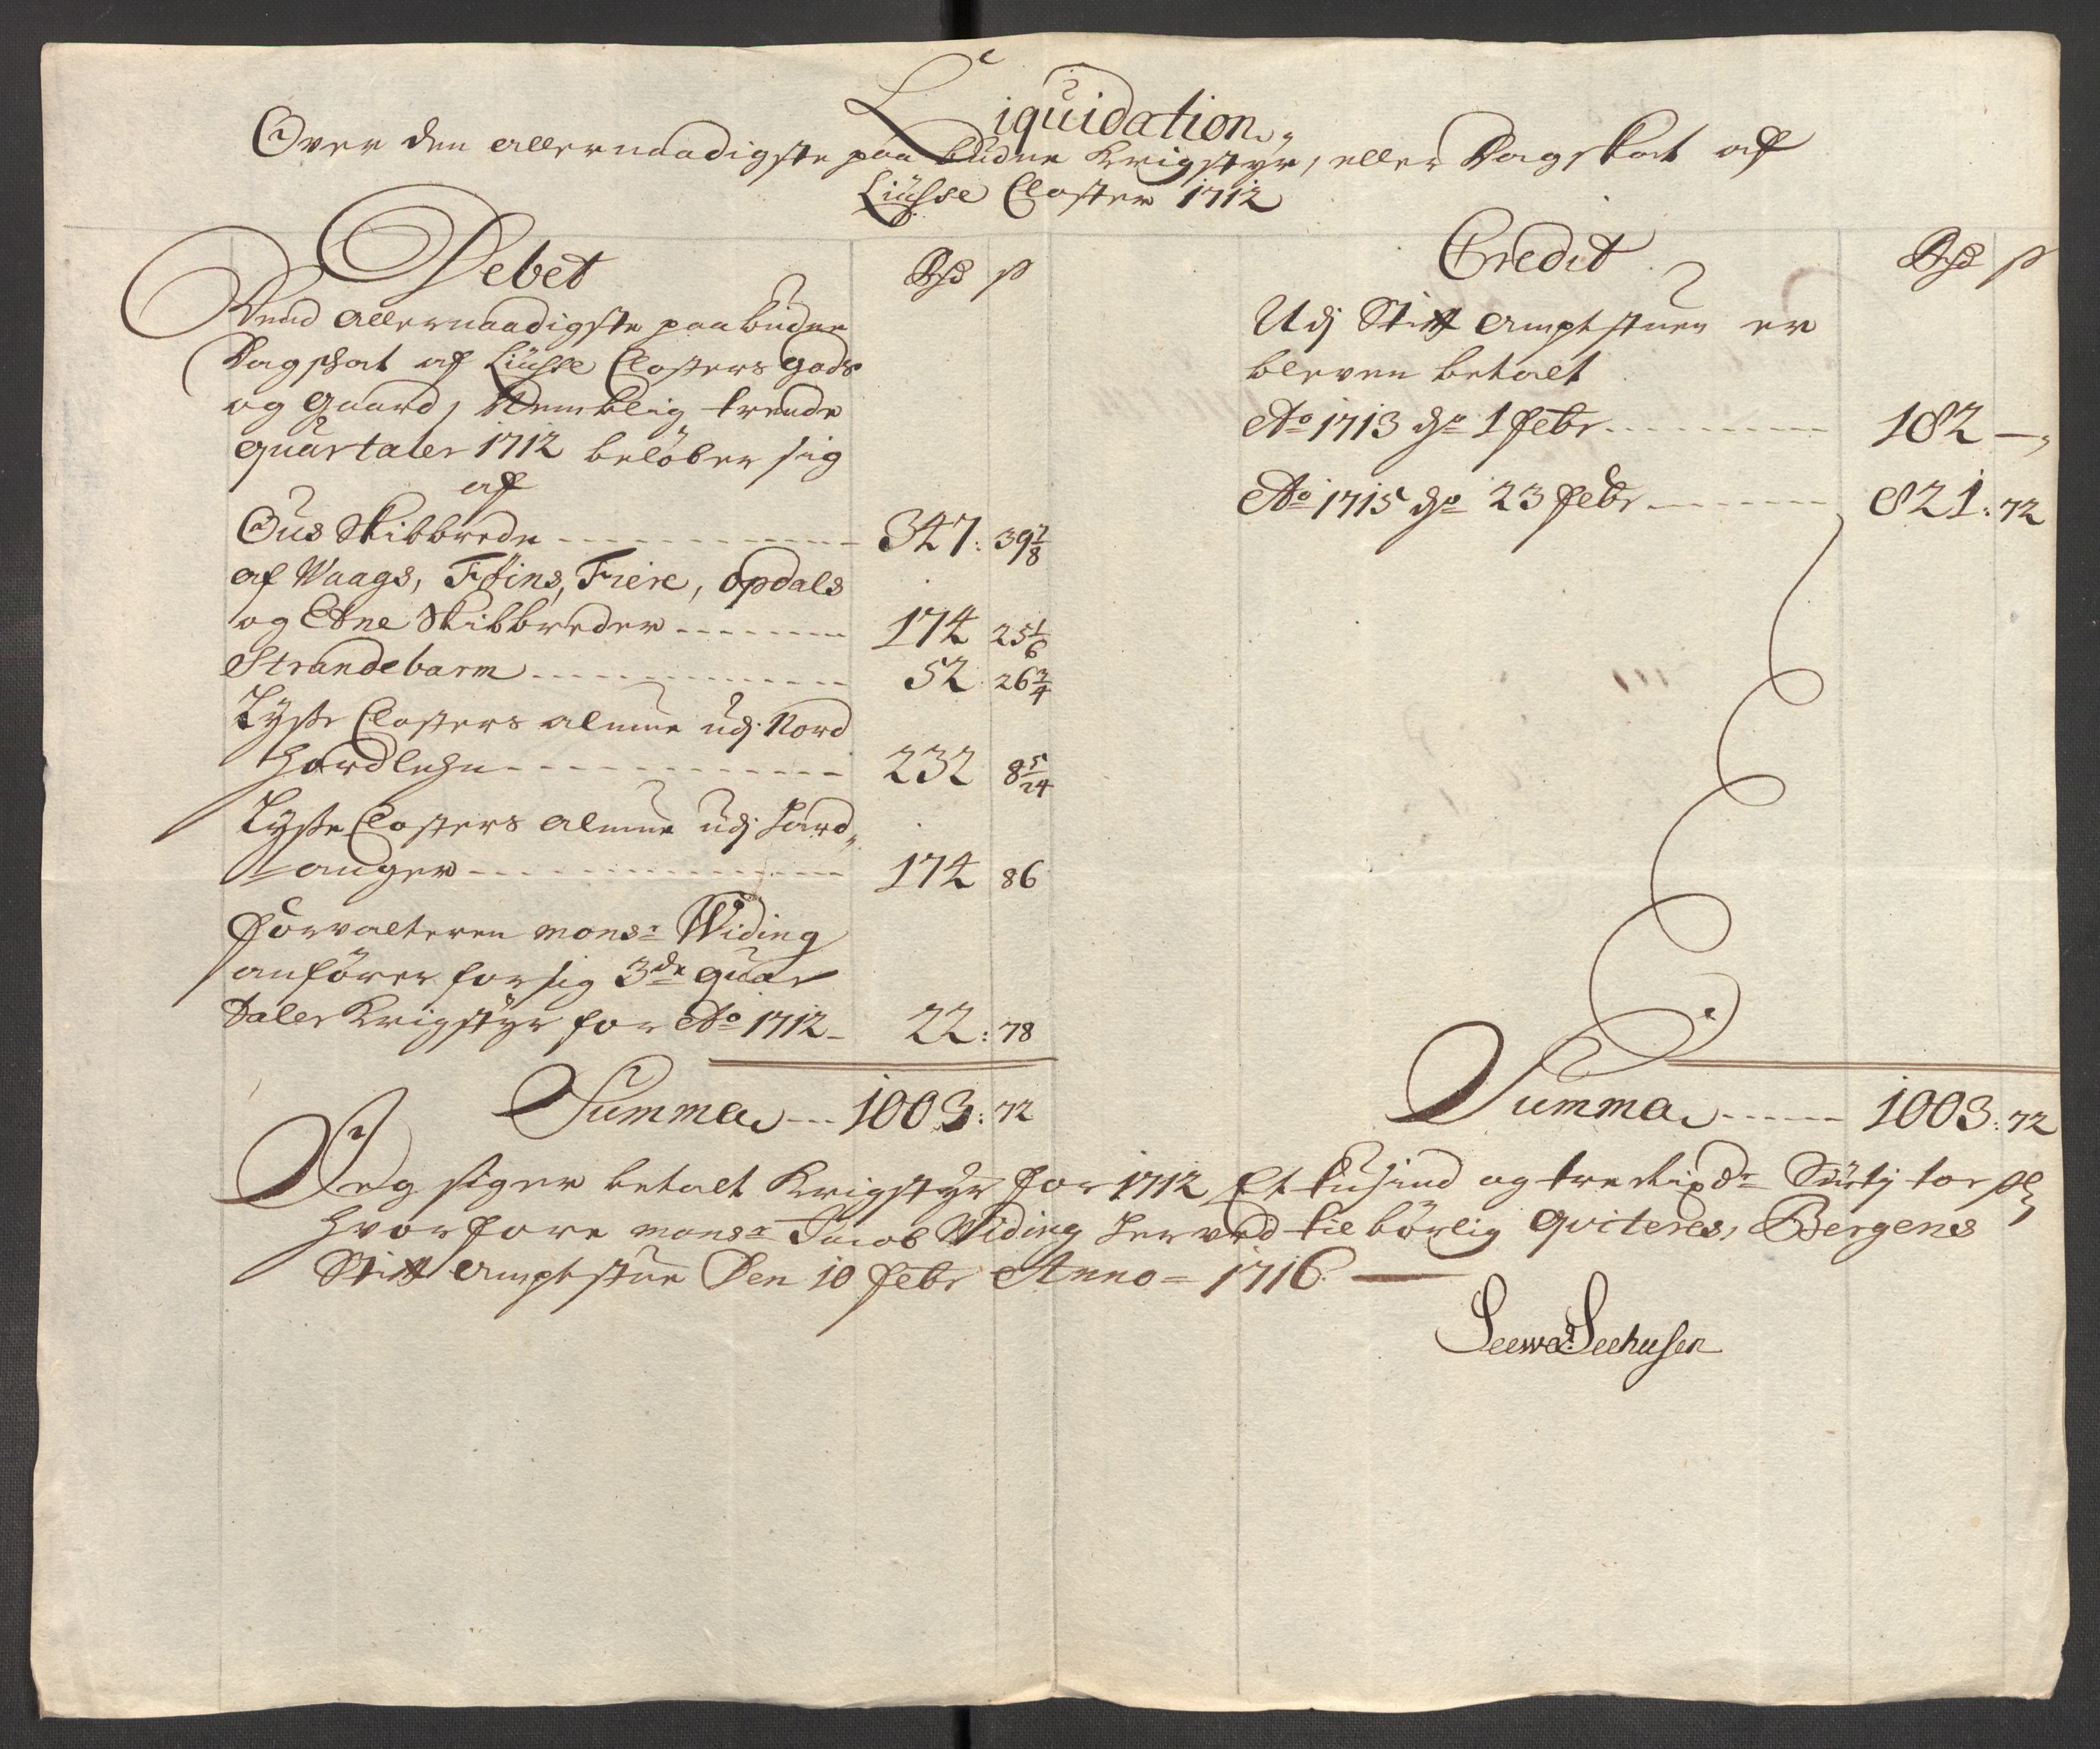 Liquidation,
Over den allernaadigste paabudne Krigstyr, eller Dagskat af
Liüsse Closter 1712
Debet
Rdr ß
Dend allernaadigste paabudne
Dagskat af Liüsse Closters gods
og gaard, Nemblig trende
quartaler 1712 beløber sig
af
Ous Skibbrede 347: 39 7/8
af Waags, Føins, Fiere, Opdals
og Etne Skibbreder 174 25 1/6
Strandebarm 52 26 3/4
Lyse Closters almue udj Nord
Hordlehn 232 8 5/24
Lyse Closters almue udj Hard„
anger 174 86
Forvalteren monsr Widing
anfører for sig 3de quar
taler Krigstyr for Ao 1712 22: 78
Summa 1003: 72
Credit
Rdr ß
Udj Stift Amptstuen er
bleven betalt
Ao 1713 do 1 Febr 182 —
Ao 1715 do 23 Febr 821: 72
Summa 1003: 72
Jeg siger betalt Krigstyr for 1712 Et tusind og tre Rixdr Siüti toe ß
hvorfore monsr Jacob Widing herved tilbørlig qviteres, Bergens
Stift Amptstue Den 10 Febr Anno 1716
Seewd: Seehusen